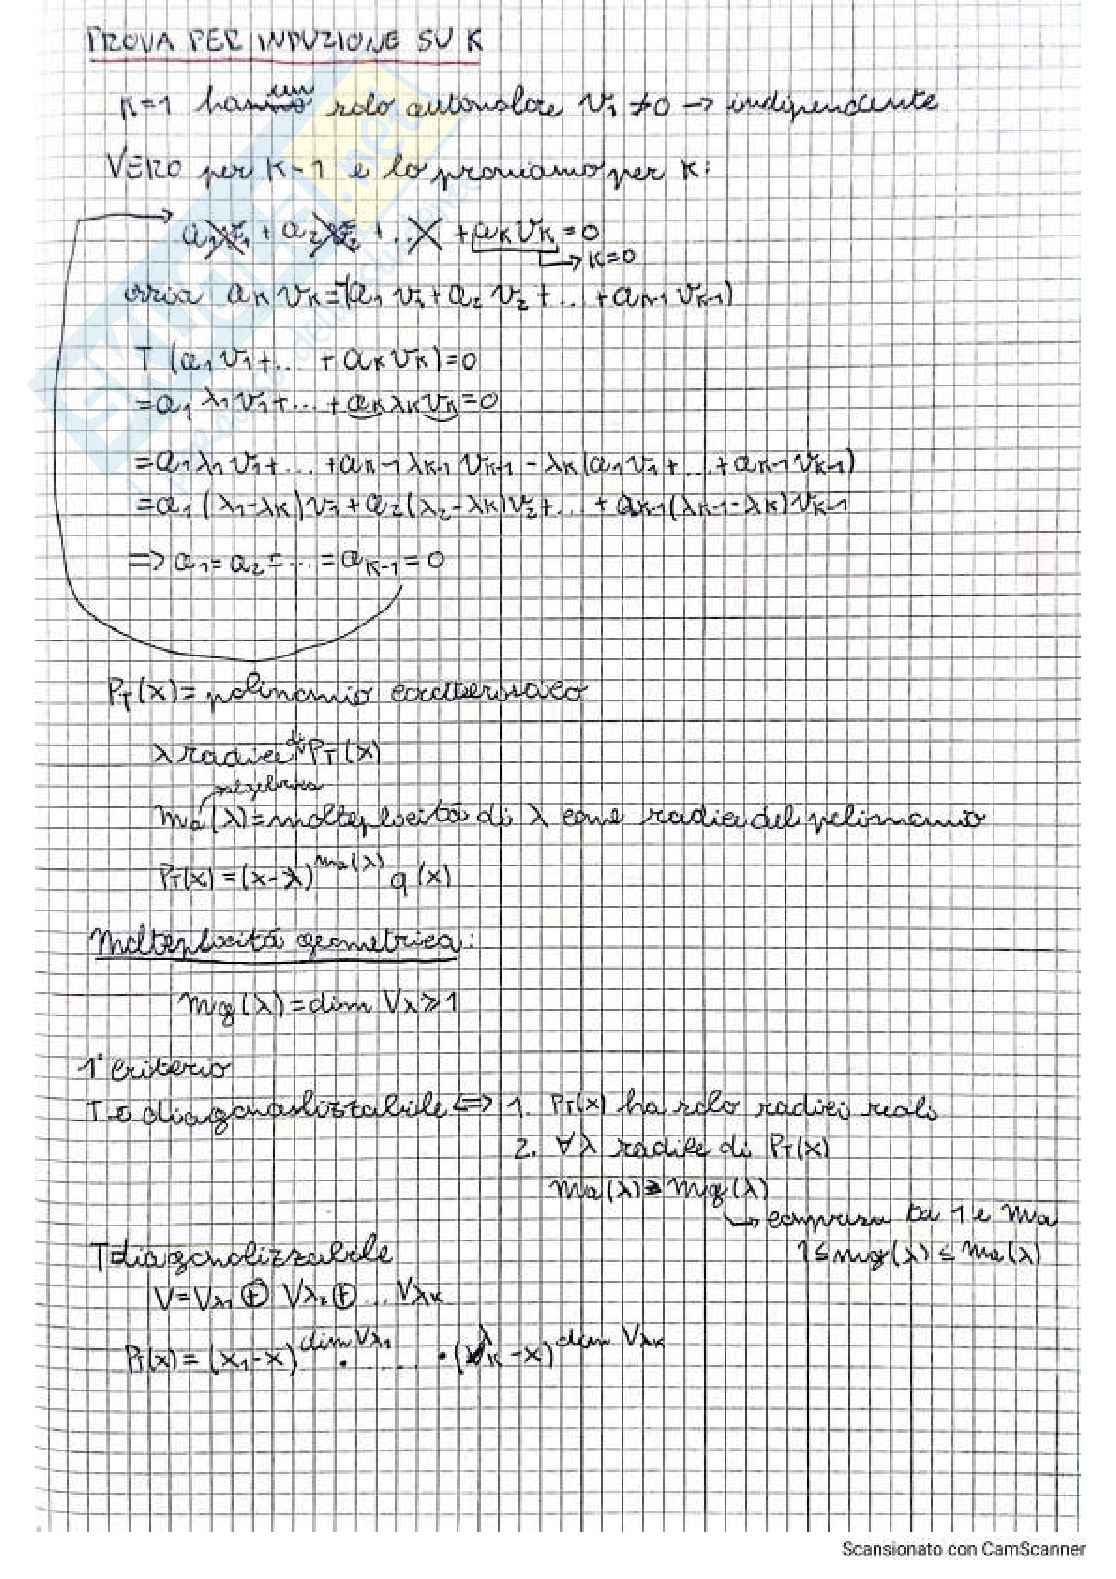 PROVA PER INDUZIONE SU K
K=1 hanno un solo autovalore v₁ ≠0 → indipendente
VERO per K-1 e lo proviamo per K:
a₁v₁ + a₂v₂ + ... + aₖvₖ = 0
→ K=0
ossia aₖvₖ=-(a₁v₁+a₂v₂+...+aₖ₋₁vₖ₋₁)
T(a₁v₁+...+aₖvₖ)=0
=a₁λ₁v₁+...+aₖλₖvₖ=0
=a₁λ₁v₁+...+aₖ₋₁λₖ₋₁vₖ₋₁-λₖ(a₁v₁+...+aₖ₋₁vₖ₋₁)
=a₁(λ₁-λₖ)v₁+a₂(λ₂-λₖ)v₂+...+aₖ₋₁(λₖ₋₁-λₖ)vₖ₋₁
=> a₁=a₂=...=aₖ₋₁=0
P_T(x)= polinomio caratteristico
λ radice di P_T(x)
algebrica
ma(λ)=molteplicità di λ come radice del polinomio
P_T(x)=(x-λ)^ma(λ) q(x)
Molteplicità geometrica:
mg(λ)=dim Vλ≥1
1° criterio
T è diagonalizzabile <=> 1. P_T(x) ha solo radici reali
2. ∀λ radice di P_T(x)
ma(λ) = mg(λ)
→ compresa tra 1 e ma
1≤mg(λ)≤ma(λ)
T diagonalizzabile
V=Vλ₁ ⊕ Vλ₂ ⊕ ... Vλₖ
P_T(x)=(x₁-x)^dim Vλ₁ · ...... · (λₖ-x)^dim Vλₖ
Scansionato con CamScanner